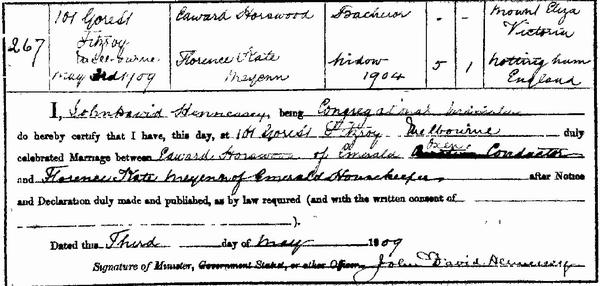 267 101 Gore St Edward Horswood Bachelor - - Mount Eliza
Fitzroy Victoria
Melbourne Florence Kate Widow 5 1 Nottingham
May 3rd 1909 Meyenn 1904 England
I, John David Hennessey, being Congregational Minister
do hereby certify that I have, this day, at 101 Gore St Fitzroy Melbourne duly
celebrated Marriage between Edward Horswood of Emerald Conductor
and Florence Kate Meyenn of Emerald Housekeeper after Notice
and Declaration duly made and published, as by law required (and with the written consent of
).
Dated this Third day of May 1909
Signature of Minister, Government Statist, or other Officer, John David Hennessey